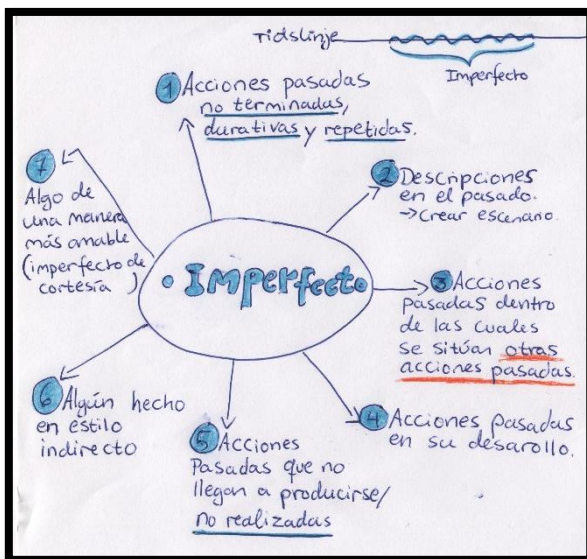 Tidslinje
Imperfecto
1 Acciones pasadas
no terminadas,
durativas y repetidas.
2 Descripciones
en el pasado.
→ Crear escenario.
3 Acciones
pasadas dentro
de las cuales
se sitúan otras
acciones pasadas.
4 Acciones pasadas
en su desarollo.
5 Acciones
Pasadas que no
llegan a producirse/
no realizadas
6 Algún hecho
en estilo
indirecto
7
Algo de
una manera
más amable
(imperfecto de
cortesía )
• Imperfecto